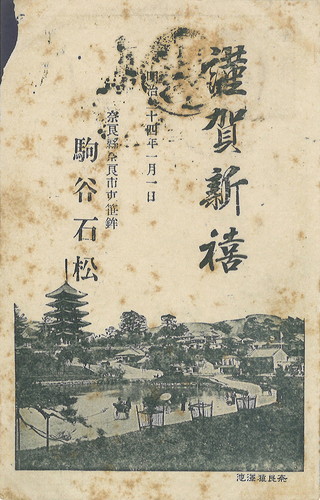 謹賀新禧
明治四十四年一月一日
奈良縣奈良市東笹鉾
駒谷石松
奈良猿澤池